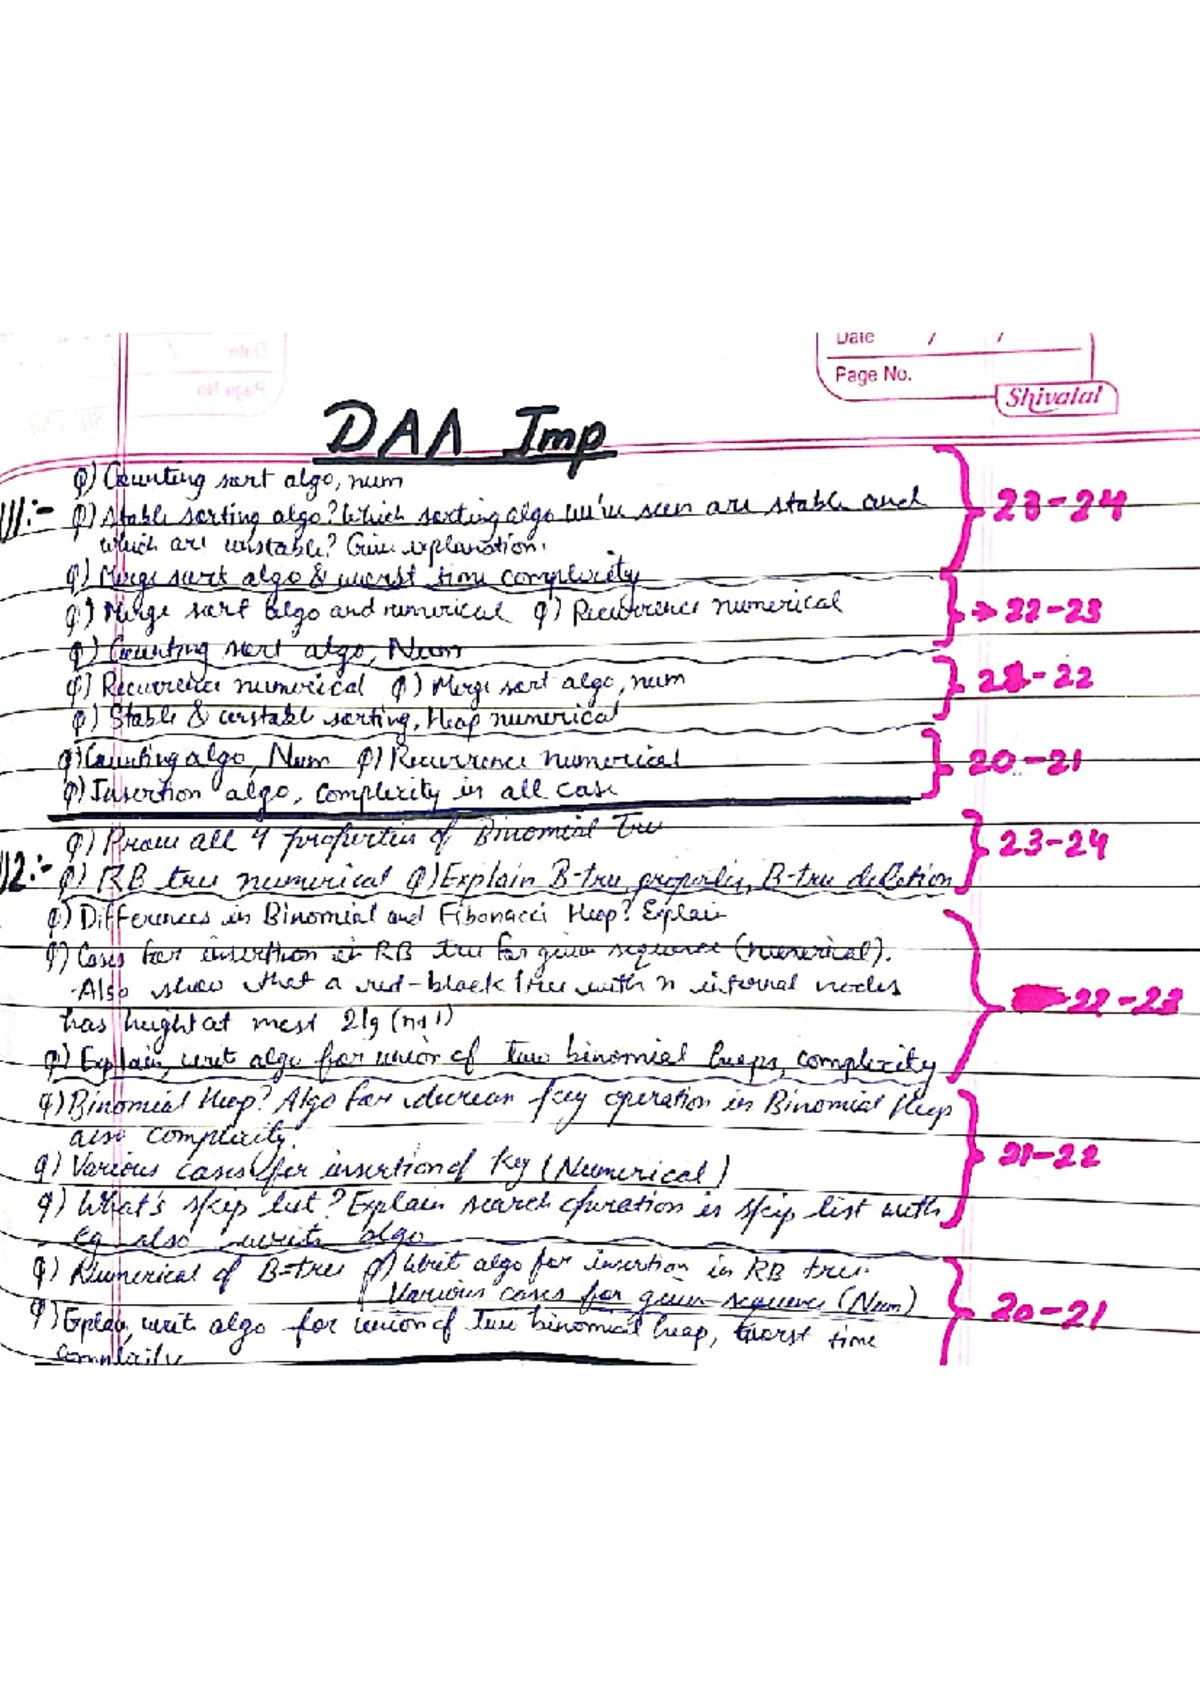 Date / /
Page No.
Shivalal
DAA Imp
Q) Counting sort algo, num
U1:- Q) Stable sorting algo? Which sorting algo we've seen are stable and 23-24
which are unstable? Give explanation.
Q) Merge sort algo & worst time complexity
Q) Merge sort algo and numerical Q) Recurrence numerical → 22-23
Q) Counting sort algo, Num
Q) Recurrence numerical Q) Merge sort algo, num 21-22
Q) Stable & unstable sorting, Heap numerical
Q) Counting algo, Num Q) Recurrence numerical 20-21
Q) Insertion algo, Complexity in all case
Q) Prove all 4 properties of Binomial Tree 23-24
U2:- Q) RB tree numerical Q) Explain B-tree, properties, B-tree deletion
Q) Differences in Binomial and Fibonacci Heap? Explain
Q) Cases for insertion in RB tree for given sequence (numerical).
Also show that a red-black tree with n internal nodes 22-23
has height at most 2lg(n+1)
Q) Explain, writ algo for union of two binomial heaps, complexity
Q) Binomial Heap? Algo for decrease key operation in Binomial Heap
also complexity. 21-22
Q) Various cases for insertion of key (Numerical)
Q) What's skip list? Explain search operation in skip list with
eg also write algo
Q) Numerical of B-tree Q) Writ algo for insertion in RB tree.
Various cases for given sequence (Num) 20-21
Q) Explain, writ algo for union of two binomial heap, worst time
complexity